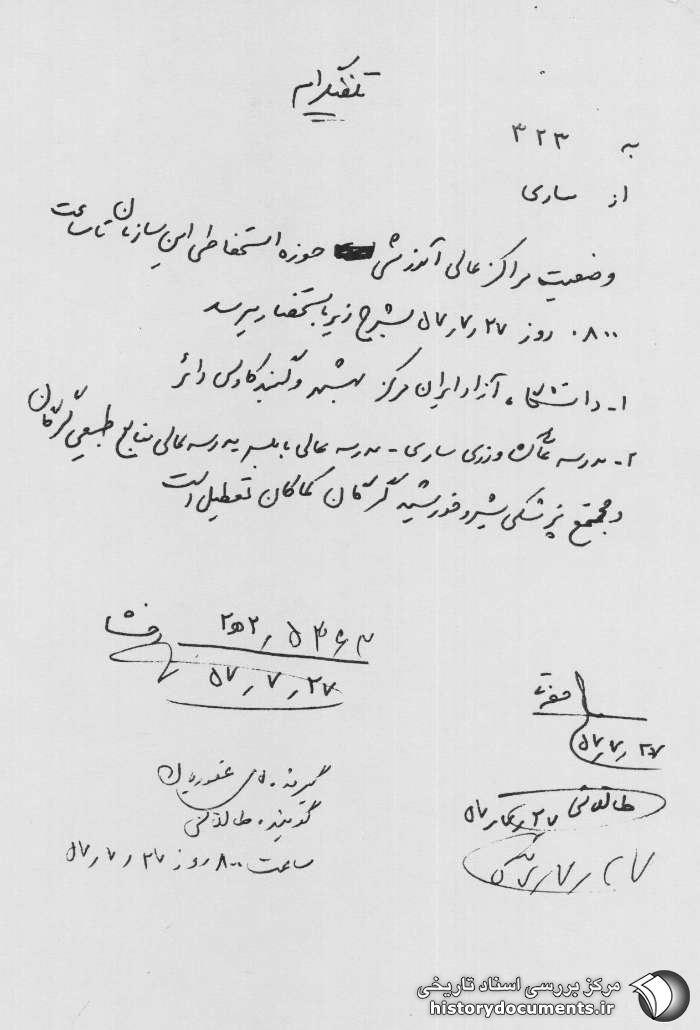 تلفنگرام
به ۳۲۳
از ساری
وضعیت مراکز عالی آموزشی حوزه استحفاظی این سازمان تا ساعت
۰۸۰۰ روز ۵۷٫۷٫۲۷ بشرح زیر باستحضار میرسد
۱- دانشگاه آزاد ایران مرکز بهشهر و گنبدکاوس دائر
۲- مدرسه عالی کشاورزی ساری - مدرسه عالی بابلسر مدرسه عالی منابع طبیعی گرگان
و مجتمع پزشکی شیروخورشید گرگان کماکان تعطیل است
۲ھ۲٫۵۴۶۳
۵۷٫۷٫۲۷
۵۷٫۷٫۲۷
طالقانی ۵۷٫۷٫۲۷
گیرنده غفوریان
گوینده طالقانی
ساعت ۸۰۰ روز ۵۷٫۷٫۲۷
مرکز بررسی اسناد تاریخی
historydocuments.ir